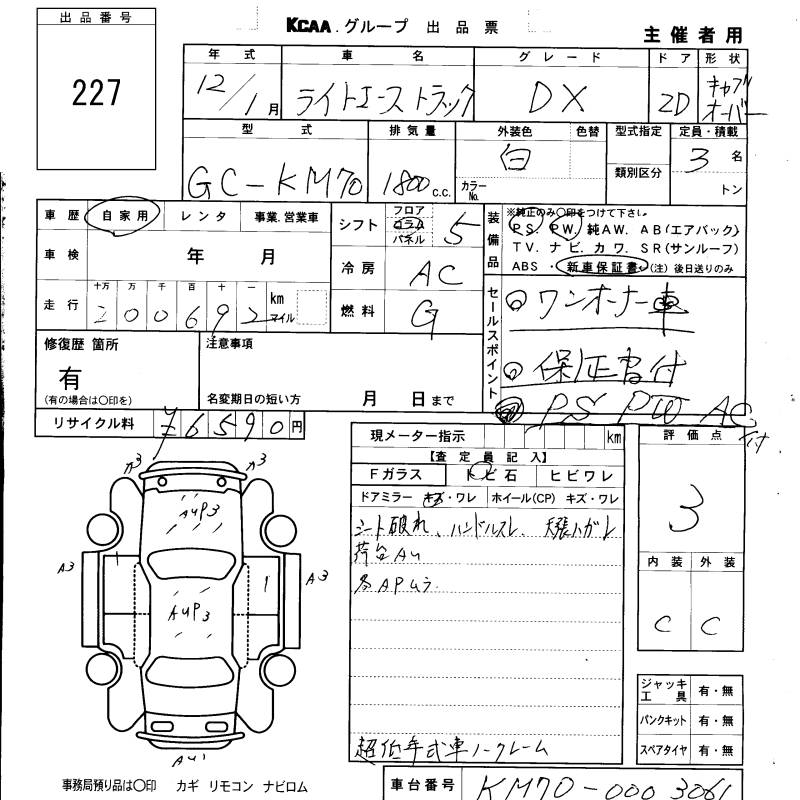 出品番号
227
KCAA.グループ 出品票
主催者用
年式 車名 グレード ドア 形状
12/1月 ライトエーストラック DX 2D キャブオーバー
型式 排気量 外装色 色替 型式指定 定員・積載
GC-KM70 1800c.c. 白 カラーNo. 類別区分 3名
トン
車歴 自家用 レンタ 事業.営業車
車検 年 月
走行 十万 万 千 百 十 一 km マイル
200692
シフト フロア コラム パネル 5
冷房 AC
燃料 G
装備品
※純正のみ〇印をつけて下さい。
PS. PW. 純AW. AB(エアバック)
TV. ナビ. カワ. SR(サンルーフ)
ABS ・ 新車保証書 (注) 後日送りのみ
セールスポイント
◎ワンオーナー車
◎保証書付
PS PW AC付
修復歴 箇所
有
(有の場合は〇印を)
注意事項
名変期日の短い方 月 日まで
リサイクル料 ¥6590円
現メーター指示 km
【査定員記入】
Fガラス トビ石 ヒビワレ
ドアミラー キズ・ワレ ホイール(CP) キズ・ワレ
シート破れ、ハンドルスレ、天張ハガレ
荷台AU
各APムラ.
超低年式車ノークレーム
評価点
3
内装 外装
C C
A3 A3
AUP3
A3 1 1 A3
AUP3
AU1
ジャッキ工具 有・無
パンクキット 有・無
スペアタイヤ 有・無
事務局預り品は〇印 カギ リモコン ナビロム
車台番号 KM70-0003061